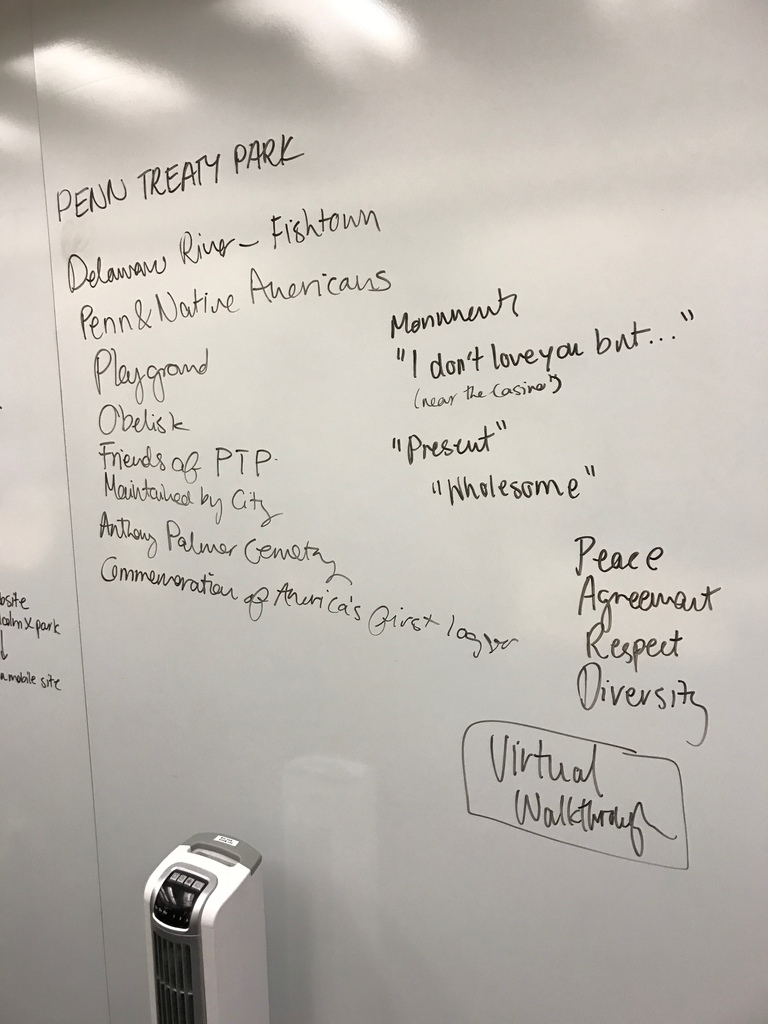 PENN TREATY PARK
Delaware River - Fishtown
Penn & Native Americans
Playground
Obelisk
Friends of PTP.
Maintained by City
Anthony Palmer Cemetary
Commemoration of America's first lager
Monument
"I don't love you but..."
(near the Casino")
"Present"
"Wholesome"
Peace
Agreement
Respect
Diversity
Virtual
Walkthrough
park
a mobile site